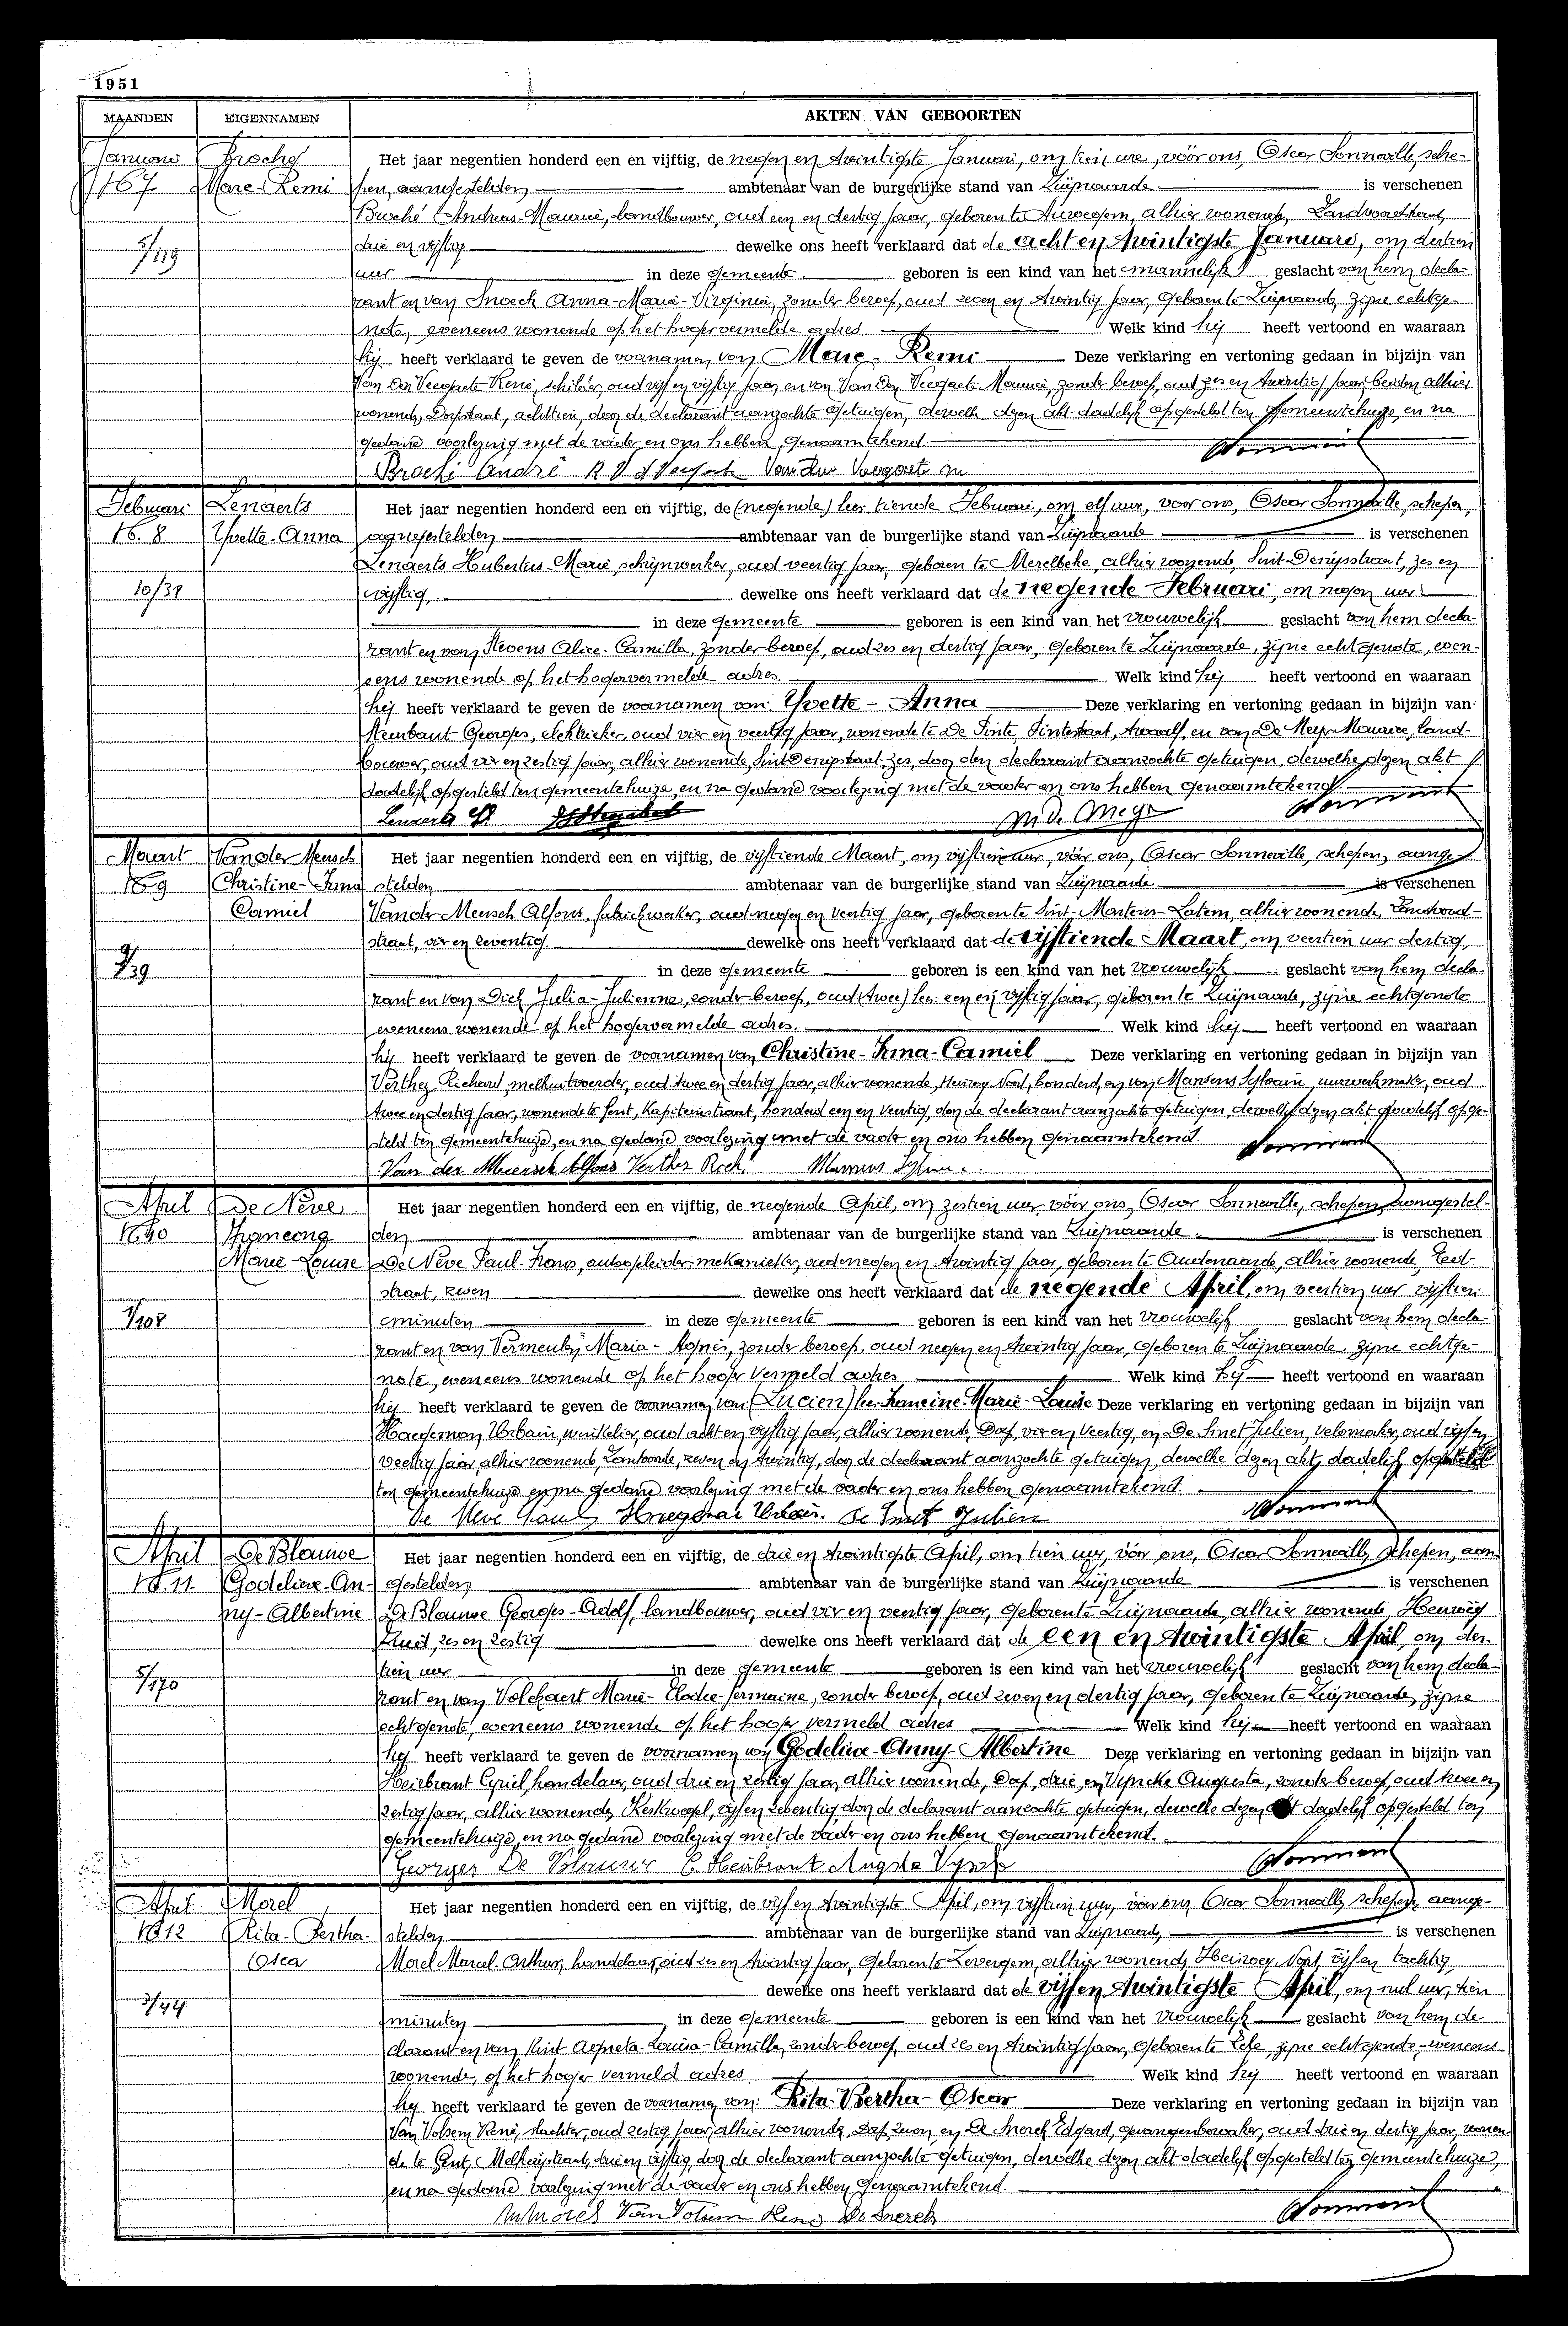 1951
MAANDEN EIGENNAMEN AKTEN VAN GEBOORTEN
Januari Broché Het jaar negentien honderd een en vijftig, de negen en twintigste Januari, om tien ure, vóór ons, Oscar Sonneville, sche-
No 7 Marc-Remi pen, aangestelden ambtenaar van de burgerlijke stand van Zwijnaarde is verschenen
Broché Andreas-Maurice, landbouwer, oud een en dertig jaar, geboren te , alhier wonende,
5/119 drie en vijftig dewelke ons heeft verklaard dat de acht en twintigste Januari, om dertien
uur in deze gemeente geboren is een kind van het mannelijk geslacht van hem decla-
rant en van Snoeck Anna-Maria-Virginia, zonder beroep, oud zeven en twintig jaar, geboren te Zwijnaarde, zijne echtge-
note, eveneens wonende op het hooger vermelde adres. Welk kind hij heeft vertoond en waaraan
hij heeft verklaard te geven de voornamen van Marc-Remi Deze verklaring en vertoning gedaan in bijzijn van
Van Der Veegaete René, schilder, oud vijf en vijftig jaar, en van Van Der Veegaete Maurice, zonder beroep, oud zes en twintig jaar, beiden alhier
wonende, Dorpstraat, achttien, door de declarant aanzochte getuigen, dewelke dezen akt dadelijk opgesteld ten gemeentehuize, en na
gedane voorlezing met de vader en ons hebben genaamtekend.
Broché André Van Der Veegaete M
Februari Lenaerts Het jaar negentien honderd een en vijftig, de (negende) lees tiende Februari, om elf uur, voor ons, Oscar Sonneville, schepen,
No. 8 Yvette-Anna aangestelden ambtenaar van de burgerlijke stand van Zwijnaarde is verschenen
Lenaerts Hubertus-Marie, schrijnwerker, oud veertig jaar, geboren te Merelbeke, alhier wonende, Sint-Denijsstraat, zes en
10/39 vijftig, dewelke ons heeft verklaard dat de negende Februari, om negen uur
in deze gemeente geboren is een kind van het vrouwelijk geslacht van hem decla-
rant en van Stevens Alice-Camilla, zonder beroep, oud zes en dertig jaar, geboren te Zwijnaarde, zijne echtgenote, even-
eens wonende op het hooger vermelde adres. Welk kind hij heeft vertoond en waaraan
hij heeft verklaard te geven de voornamen van: Yvette-Anna Deze verklaring en vertoning gedaan in bijzijn van
Georges, elektrieker, oud vier en veertig jaar, wonende te De Pinte, Pintestraat, twaalf, en van De Meyer Maurice, land-
bouwer, oud vier en zestig jaar, alhier wonende, Sint-Denijsstraat, zes, door den declarant aanzochte getuigen, dewelke dezen akt
dadelijk opgesteld ten gemeentehuize, en na gedane voorlezing met de vader en ons hebben genaamtekend.
Lenaerts M. De Meyer
Maart Van der Meersch Het jaar negentien honderd een en vijftig, de vijftiende Maart, om vijftien uur, vóór ons, Oscar Sonneville, schepen, aange-
No 9 Christine-Irma stelden ambtenaar van de burgerlijke stand van Zwijnaarde is verschenen
Camiel Van der Meersch Alfons, fabriekwerker, oud negen en veertig jaar, geboren te Sint-Martens-Latem, alhier wonende,
straat, vier en zeventig dewelke ons heeft verklaard dat de vijftiende Maart, om veertien uur dertig,
9/39 in deze gemeente geboren is een kind van het vrouwelijk geslacht van hem decla-
rant en van Dick Julia-Julienne, zonder beroep, oud (twee) lees: een en vijftig jaar, geboren te Zwijnaarde, zijne echtgenote
eveneens wonende op het hooger vermelde adres. Welk kind hij heeft vertoond en waaraan
hij heeft verklaard te geven de voornamen van Christine-Irma-Camiel Deze verklaring en vertoning gedaan in bijzijn van
Verthez Richard, melkuitvoerder, oud twee en dertig jaar, alhier wonende, Heirweg-Noord, honderd, en van Mansens Sylvain, uurwerkmaker, oud
twee en dertig jaar, wonende te Gent, Kapiteinstraat, honderd een en veertig, door de declarant aanzochte getuigen, dewelke dezen akt dadelijk opge-
steld ten gemeentehuize, en na gedane voorlezing met de vader en ons hebben genaamtekend.
Van der Meersch Alfons Verthez Rich.
April De Neve Het jaar negentien honderd een en vijftig, de negende April, om zestien uur, vóór ons, Oscar Sonneville, schepen, aangestel-
No 10 Francine den ambtenaar van de burgerlijke stand van Zwijnaarde is verschenen
Marie-Louise De Neve Paul-Frans, autogeleider-mekanieker, oud negen en twintig jaar, geboren te Oudenaarde, alhier wonende,
straat, zeven dewelke ons heeft verklaard dat de negende April, om veertien uur vijftien
1/108 minuten in deze gemeente geboren is een kind van het vrouwelijk geslacht van hem decla-
rant en van Vermeulen Maria-Agnes, zonder beroep, oud negen en twintig jaar, geboren te Zwijnaarde, zijne echtge-
note, eveneens wonende op het hooger vermeld adres Welk kind hij heeft vertoond en waaraan
hij heeft verklaard te geven de voornamen van (Lucien) lees Francine-Marie-Louise Deze verklaring en vertoning gedaan in bijzijn van
Haegeman Urbain, winkelier, oud acht en vijftig jaar, alhier wonende, Dorp, vier en veertig, en De Smet Julien, velomaker, oud vijf en
veertig jaar, alhier wonende, , zeven en twintig, door de declarant aanzochte getuigen, dewelke dezen akt dadelijk opgesteld
ten gemeentehuize en na gedane voorlezing met de vader en ons hebben genaamtekend.
De Neve Paul Haegeman Urbain. De Smet Julien
April De Blauwe Het jaar negentien honderd een en vijftig, de drie en twintigste April, om tien uur, vóór ons, Oscar Sonneville, schepen, aan-
No. 11 Godelieve-An- gestelden ambtenaar van de burgerlijke stand van Zwijnaarde is verschenen
ny-Albertine De Blauwe Georges-Adolf, landbouwer, oud vier en veertig jaar, geboren te Zwijnaarde, alhier wonende, Heirweg
Zuid, zes en zestig dewelke ons heeft verklaard dat de een en twintigste April, om der-
5/170 tien uur in deze gemeente geboren is een kind van het vrouwelijk geslacht van hem decla-
rant en van Volckaert Marie-Elodie-Germaine, zonder beroep, oud zeven en dertig jaar, geboren te Zwijnaarde, zijne
echtgenote, eveneens wonende op het hooger vermeld adres Welk kind hij heeft vertoond en waaraan
hij heeft verklaard te geven de voornamen van Godelieve-Anny-Albertine Deze verklaring en vertoning gedaan in bijzijn van
Heirbrant Cyriel, handelaar, oud drie en zestig jaar, alhier wonende, Dorp, drie, en Vyncke Augusta, zonder beroep, oud twee en
zestig jaar, alhier wonende, Kerkwegel, vijf en zeventig, door de declarant aanzochte getuigen, dewelke dezen akt dadelijk opgesteld ten
gemeentehuize, en na gedane voorlezing met de vader en ons hebben genaamtekend.
Georges De Blauwe C. Heirbrant Augusta Vyncke
April Morel Het jaar negentien honderd een en vijftig, de vijf en twintigste April, om vijftien uur, vóór ons, Oscar Sonneville, schepen, aange-
No 12 Rita-Bertha- stelden ambtenaar van de burgerlijke stand van Zwijnaarde is verschenen
Oscar Morel Marcel-Arthur, handelaar, oud zes en twintig jaar, geboren te Zevergem, alhier wonende, Heirweg-Noord, vijf en tachtig,
3/44 dewelke ons heeft verklaard dat de vijf en twintigste April, om nul uur, tien
minuten in deze gemeente geboren is een kind van het vrouwelijk geslacht van hem de-
clarant en van Kint Agneta-Louisa-Camilla, zonder beroep, oud zes en twintig jaar, geboren te Eke, zijne echtgenote, eveneens
wonende, op het hooger vermeld adres Welk kind hij heeft vertoond en waaraan
hij heeft verklaard te geven de voornamen van: Rita-Bertha-Oscar Deze verklaring en vertoning gedaan in bijzijn van
Van Volsem René, slachter, oud zestig jaar, alhier wonende, Dorp, zeven, en De Snerck Edgard, gevangenbewaker, oud drie en dertig jaar, wonen-
de te Gent, , drie en vijftig, door de declarant aanzochte getuigen, dewelke dezen akt dadelijk opgesteld ten gemeentehuize,
en na gedane voorlezing met de vader en ons hebben genaamtekend.
M Morel Van Volsem René De Snerck